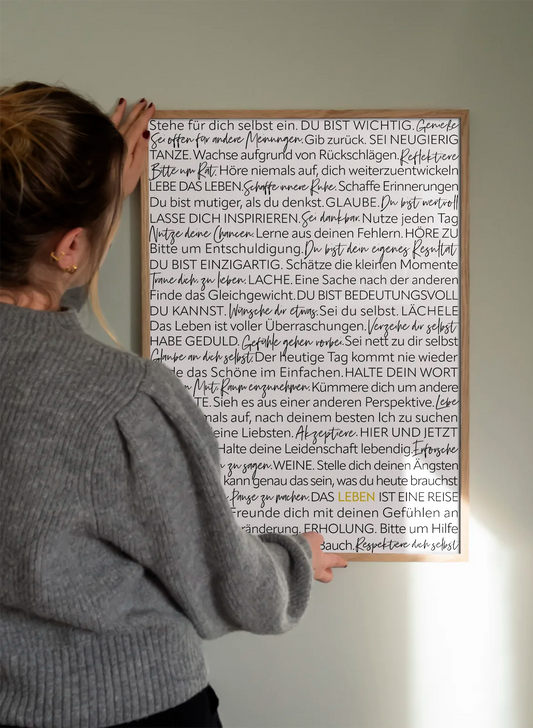 Stehe für dich selbst ein. DU BIST WICHTIG. Genieße
Sei offen für andere Meinungen. Gib zurück. SEI NEUGIERIG
TANZE. Wachse aufgrund von Rückschlägen. Reflektiere
Bitte um Rat. Höre niemals auf, dich weiterzuentwickeln
LEBE DAS LEBEN. Schaffe innere Ruhe. Schaffe Erinnerungen
Du bist mutiger, als du denkst. GLAUBE. Du bist wertvoll
LASSE DICH INSPIRIEREN. Sei dankbar. Nutze jeden Tag
Nutze deine Chancen. Lerne aus deinen Fehlern. HÖRE ZU
Bitte um Entschuldigung. Du bist dein eigenes Resultat
DU BIST EINZIGARTIG. Schätze die kleinen Momente
Traue dich zu lieben. LACHE. Eine Sache nach der anderen
Finde das Gleichgewicht. DU BIST BEDEUTUNGSVOLL
DU KANNST. Wünsche dir etwas. Sei du selbst. LÄCHELE
Das Leben ist voller Überraschungen. Verzeihe dir selbst
HABE GEDULD. Gefühle gehen vorbei. Sei nett zu dir selbst
Glaube an dich selbst. Der heutige Tag kommt nie wieder
das Schöne im Einfachen. HALTE DEIN WORT
Mut, Raum einzunehmen. Kümmere dich um andere
TE. Sieh es aus einer anderen Perspektive. Lebe
mals auf, nach deinem besten Ich zu suchen
eine Liebsten. Akzeptiere. HIER UND JETZT
Halte deine Leidenschaft lebendig. Erforsche
zu sagen. WEINE. Stelle dich deinen Ängsten
kann genau das sein, was du heute brauchst
Pause zu machen. DAS LEBEN IST EINE REISE
Freunde dich mit deinen Gefühlen an
ränderung. ERHOLUNG. Bitte um Hilfe
Bauch. Respektiere dich selbst